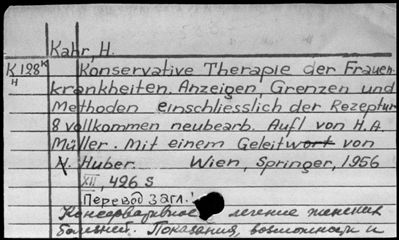 Kahr, H.
К 198к Konservative Therapie der Frauen-
н krankheiten. Anzeigen, Grenzen und
Methoden einschliesslich der Rezeptur
8 vollkommen neubearb. Aufl von H.A.
Müller. Mit einem Geleitwort von
H. Huber. Wien, Springer, 1956
XII, 496 S
Перевод загл.:
Консервативное лечение женских
болезней. Показания, возможности и